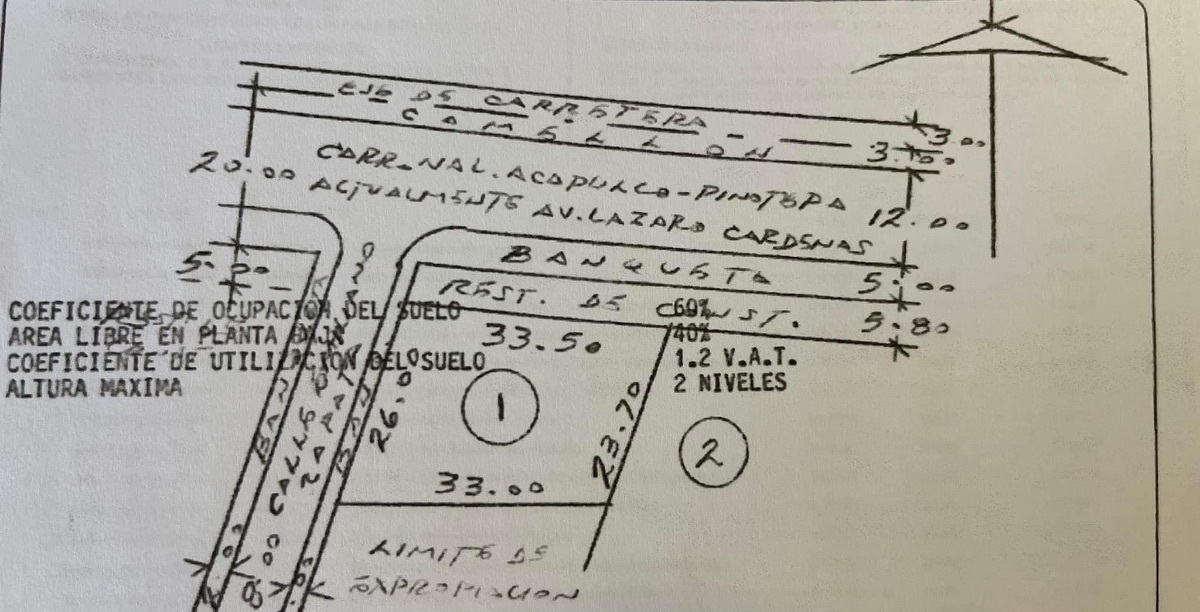 EJE DE CARRETERA
3.00
CAMELLON
3.00
CARR. NAL. ACAPULCO-PINOTEPA
20.00
12.00
ACTUALMENTE AV. LAZARO CARDENAS
BANQUETA
5.00
5.00
REST. DE CONST.
5.80
COEFICIENTE DE OCUPACION DEL SUELO 60%
AREA LIBRE EN PLANTA BAJA 40%
COEFICIENTE DE UTILIZACION DEL SUELO 1.2 V.A.T.
ALTURA MAXIMA 2 NIVELES
33.50
26.0
1
23.70
2
33.00
CALLE
ZAPATA
8.00
LIMITE DE
EXPROPIACION